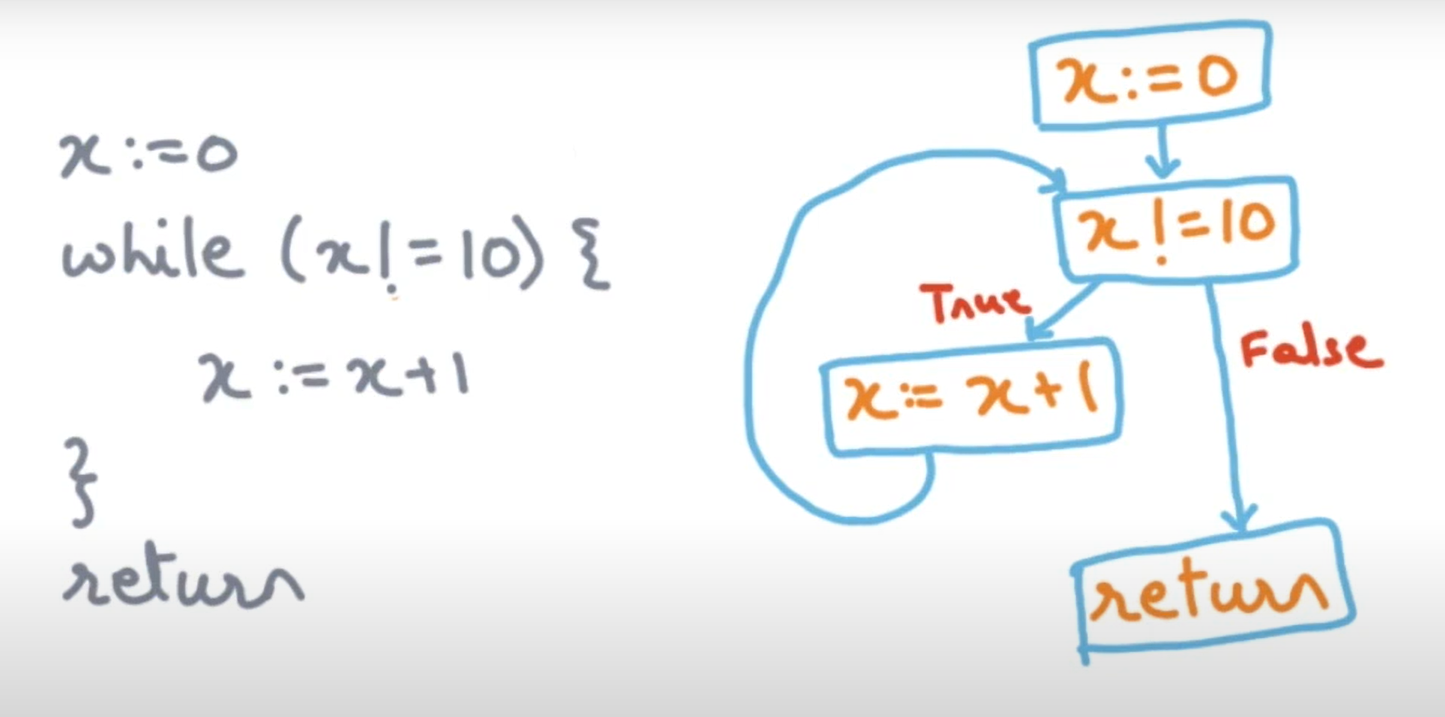 x:=0
while (x!=10) {
x:=x+1
}
return
x:=0
x!=10
True
False
x:= x+1
return